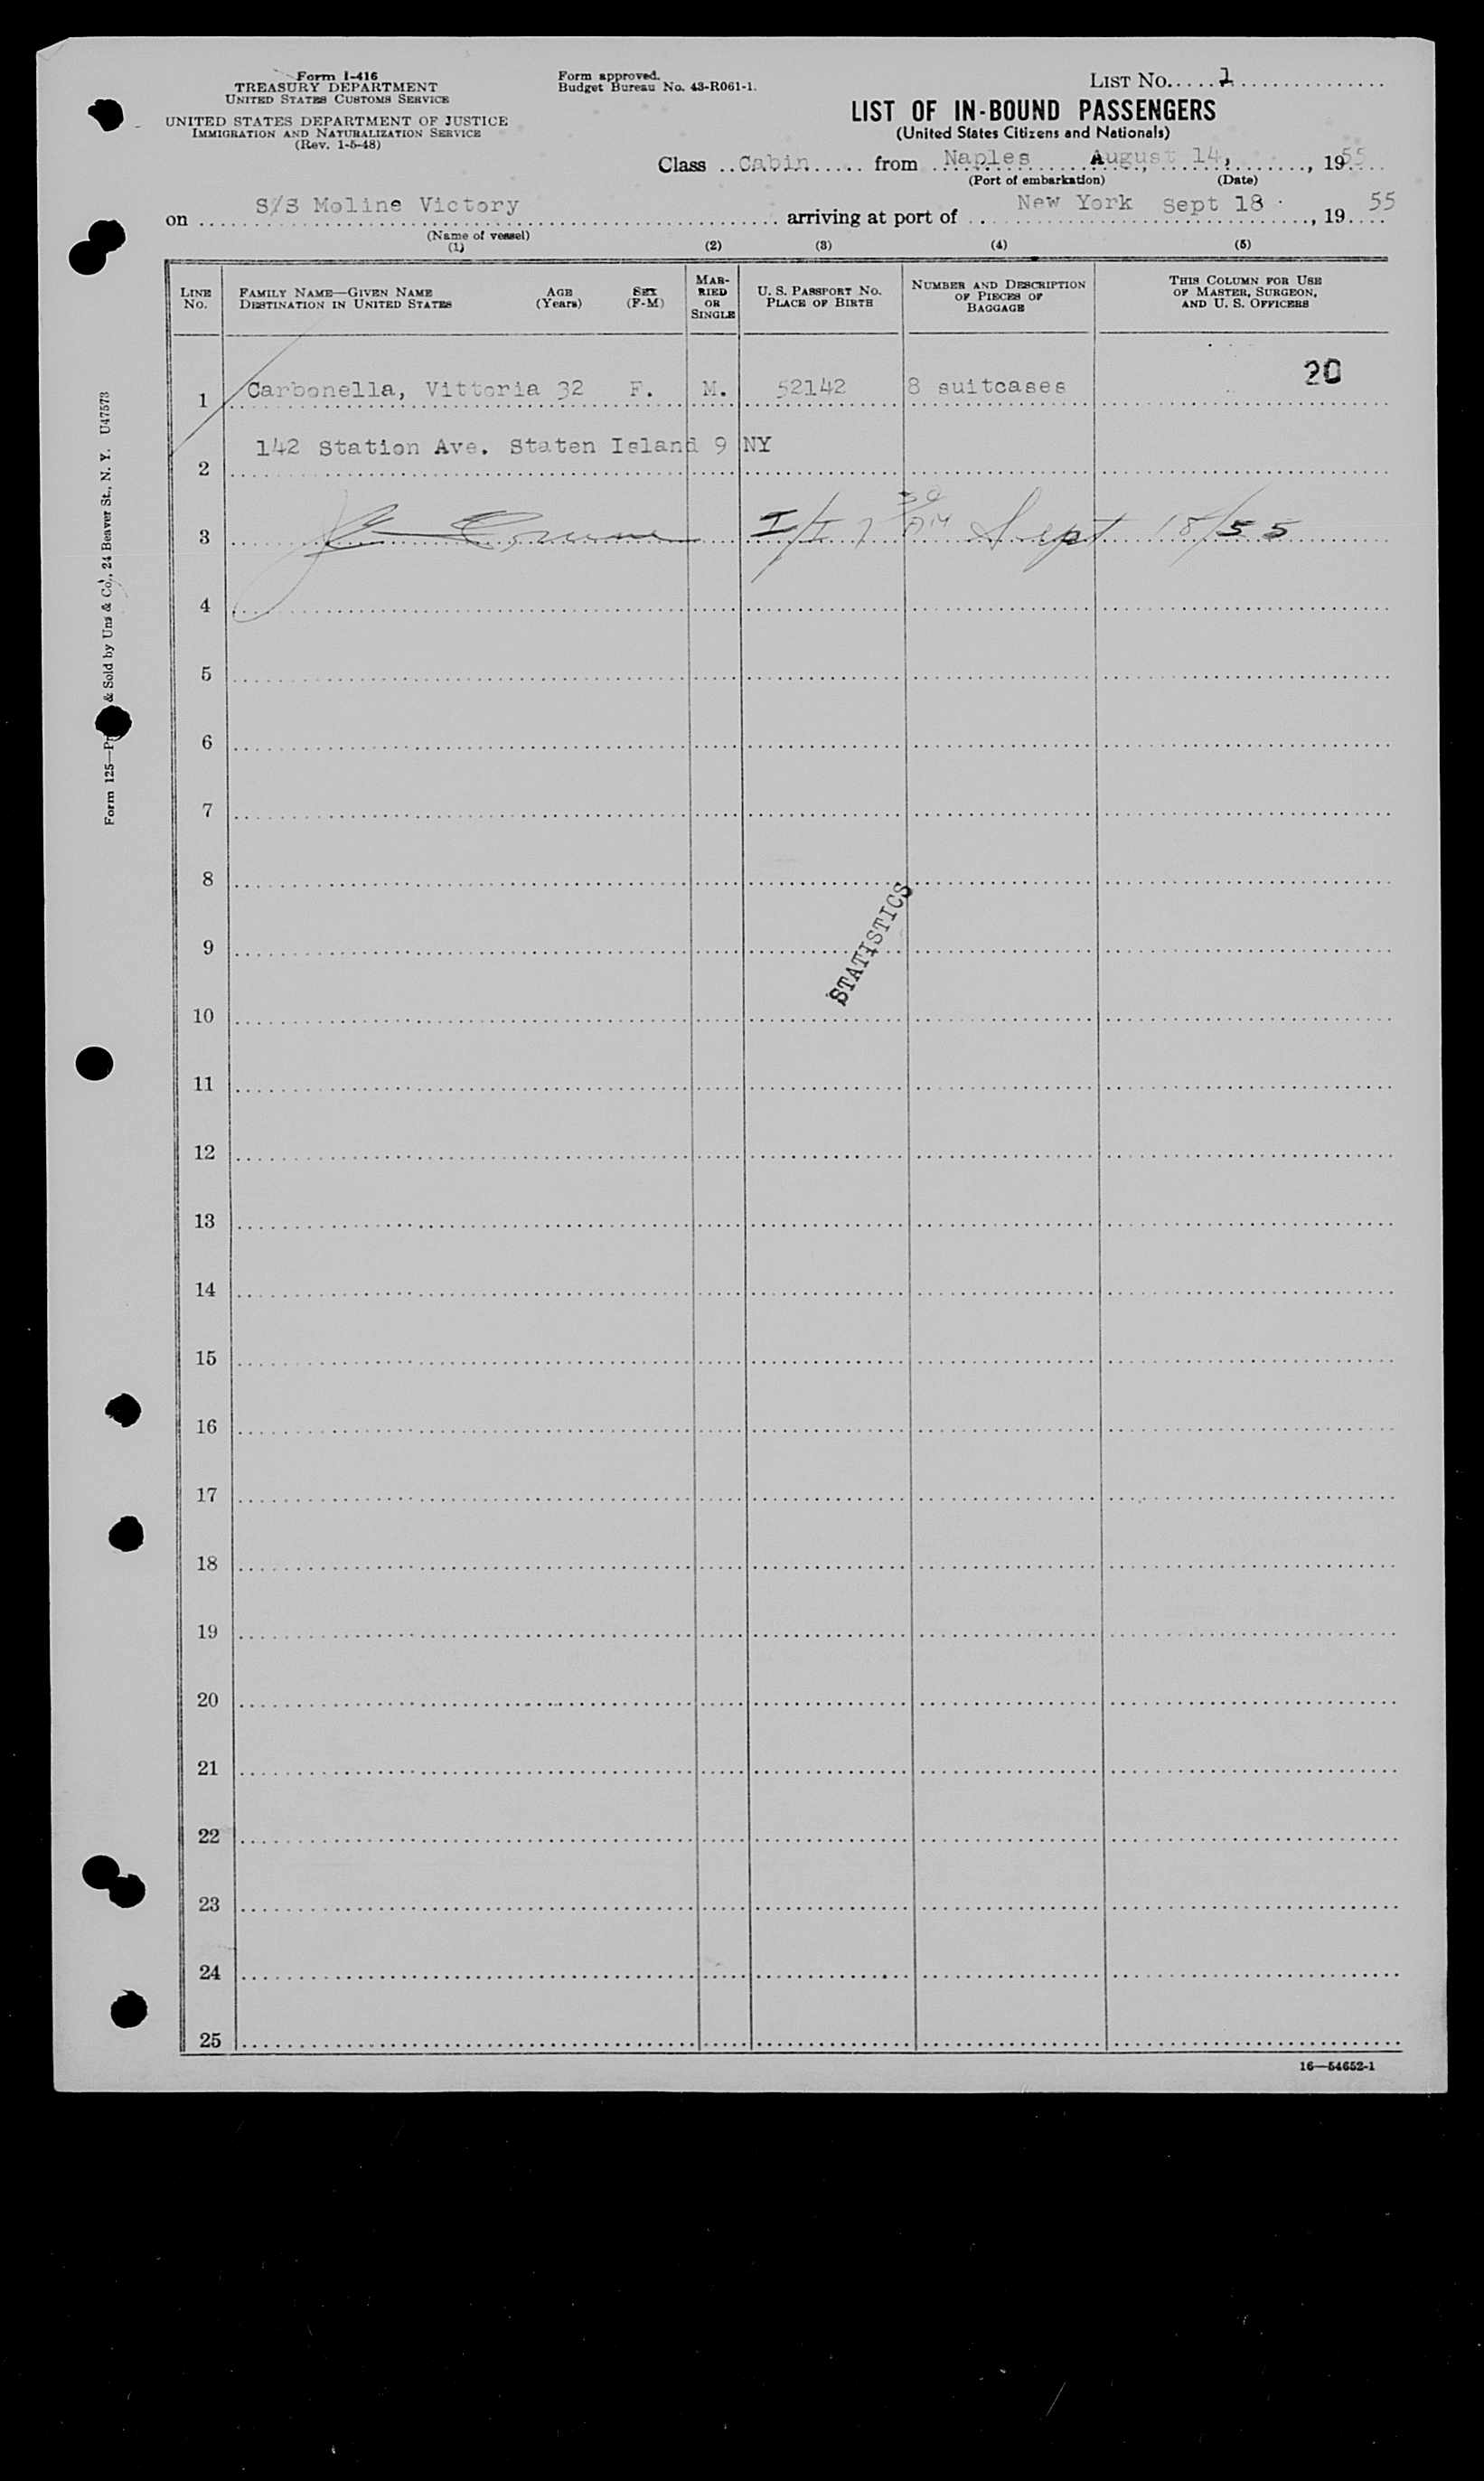 Form I-416
TREASURY DEPARTMENT
UNITED STATES CUSTOMS SERVICE
UNITED STATES DEPARTMENT OF JUSTICE
IMMIGRATION AND NATURALIZATION SERVICE
(Rev. 1-5-48)
Form approved.
Budget Bureau No. 43-R061-1.
LIST No. 1
LIST OF IN-BOUND PASSENGERS
(United States Citizens and Nationals)
Class Cabin from Naples August 14, , 1955
(Port of embarkation) (Date)
on S/S Moline Victory arriving at port of New York Sept 18 , 19 55
(Name of vessel)
(1) (2) (3) (4) (5)
LINE No. FAMILY NAME—GIVEN NAME DESTINATION IN UNITED STATES AGE (Years) SEX (F-M) MARRIED OR SINGLE U. S. PASSPORT NO. PLACE OF BIRTH NUMBER AND DESCRIPTION OF PIECES OF BAGGAGE THIS COLUMN FOR USE OF MASTER, SURGEON, AND U. S. OFFICERS
20
1 Carbonella, Vittoria 32 F. M. 52142 8 suitcases
142 Station Ave. Staten Island 9 NY
2
3 I/I 7 30 AM Sept 18/55
4
5
6
7
8
STATISTICS
9
10
11
12
13
14
15
16
17
18
19
20
21
22
23
24
25
16—54652-1
Form 125— & Sold by Unz & Co., 24 Beaver St., N. Y. U47573